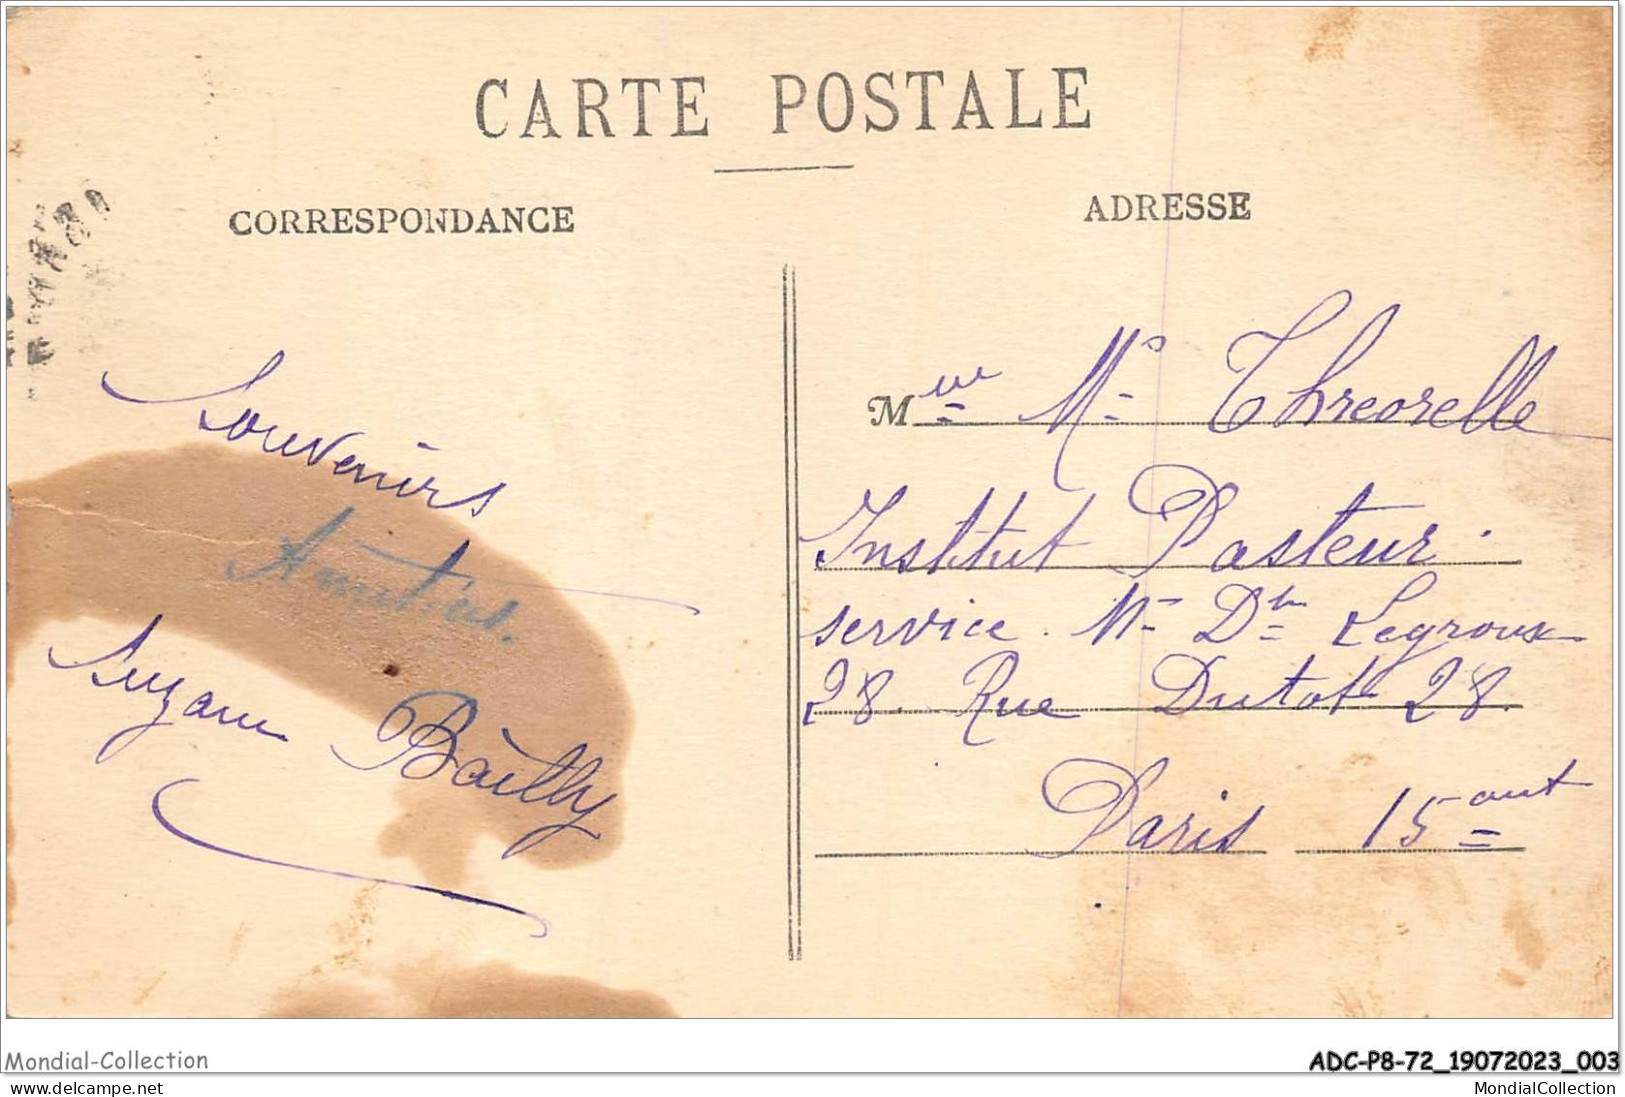 CARTE POSTALE
CORRESPONDANCE
ADRESSE
Souvenirs
Amitiés.
Suzanne Bailly
Mme M. Threorelle
Institut Pasteur.
service Mr Dr Legroux
28. Rue Dutot 28.
Paris 15
Mondial-Collection
ADC-P8-72_19072023_003
www.delcampe.net
MondialCollection